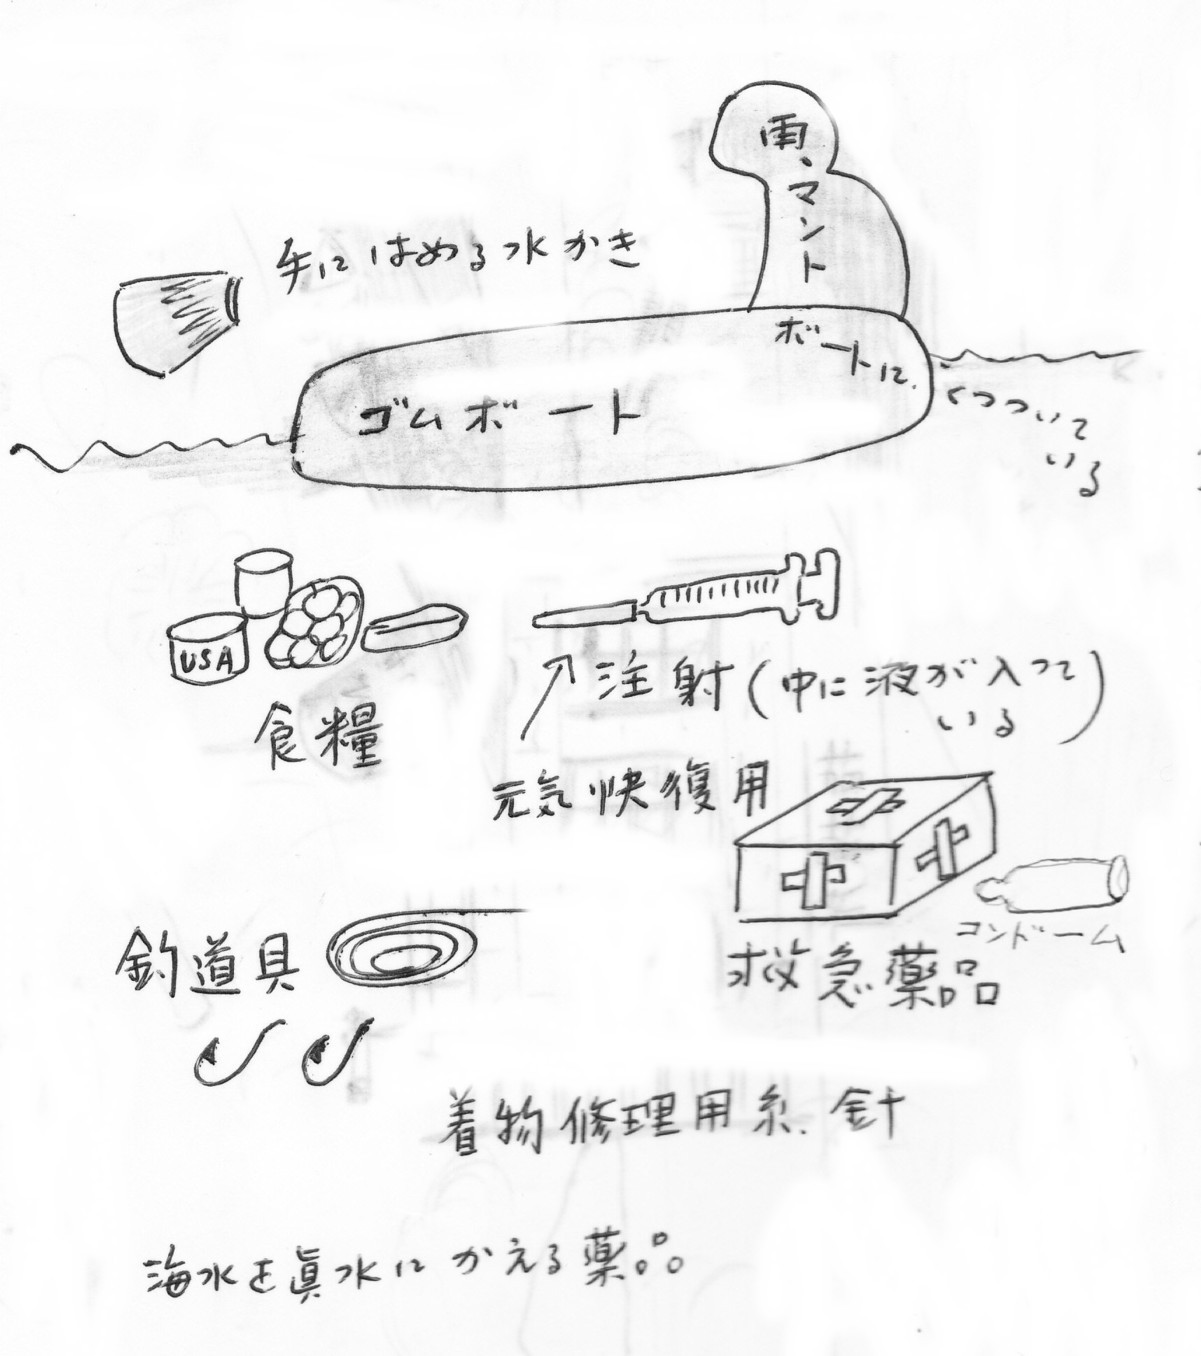 雨、マント
手にはめる水かき
ボートに
くっついて
いる
ゴムボート
USA
食糧
注射(中に液が入って
いる)
元気快復用
コンドーム
救急薬品
釣道具
着物修理用糸.針
海水を眞水にかえる薬品